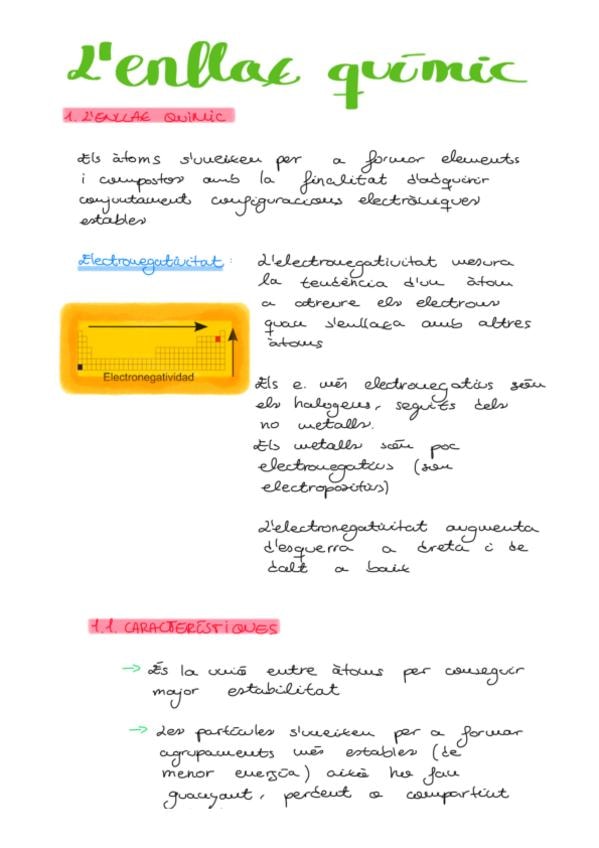 L'enllaç químic
1. L'ENLLAÇ QUÍMIC
Els àtoms s'uneixen per a formar elements
i compostos amb la finalitat d'adquirir
conjuntament configuracions electròniques
estables
Electronegativitat:
L'electronegativitat mesura
la tendència d'un àtom
a atreure els electrons
quan s'enllaça amb altres
àtoms
Electronegatividad
Els e. més electronegatius són
els halogens, seguits dels
no metalls.
Els metalls són poc
electronegatius (són
electropositius)
L'electronegativitat augmenta
d'esquerra a dreta i de
dalt a baix
1.1. CARACTERÍSTIQUES
→ És la unió entre àtoms per conseguir
major estabilitat
→ Les partícules s'uneixen per a formar
agrupaments més estables (de
menor energia) això ho fan
guanyant, perdent o compartint